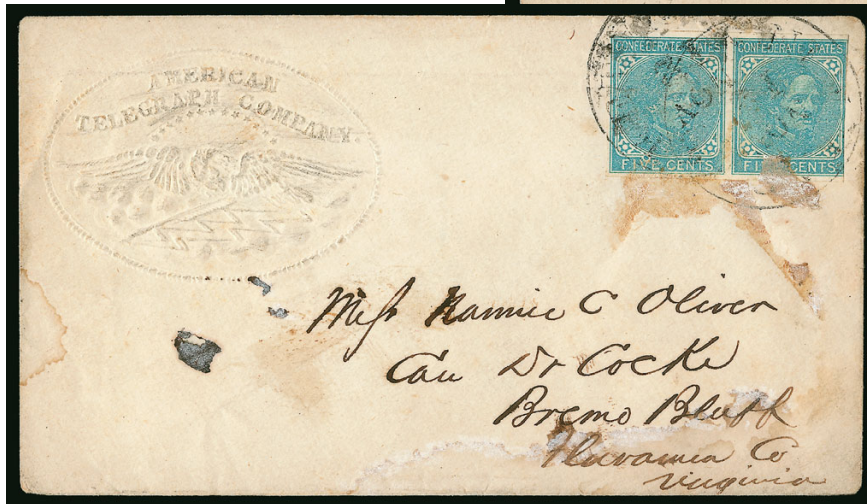 AMERICAN
TELEGRAPH COMPANY.
CONFEDERATE STATES
FIVE CENTS
CONFEDERATE STATES
FIVE CENTS
Miss Nannie C Oliver
Care Dr Cocke
Bremo Bluff
Fluvanna Co
Virginia